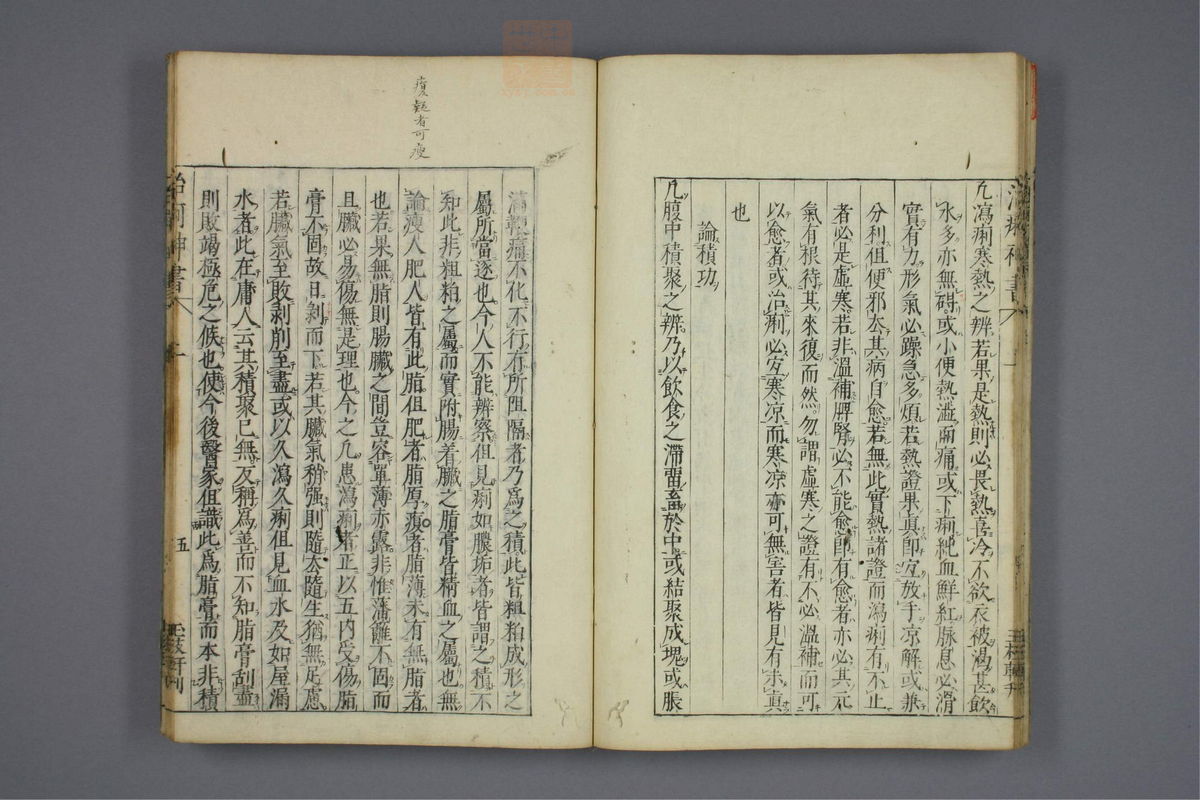 凢瀉痢寒熱之辨若果是熱則必畏熱喜冷不欲衣被渴甚飲
水多亦無碍或小便熱澁而痛或下痢純血鮮紅脉息必滑
實有力形氣必躁急多煩若熱證果真卽宜放手凉解或兼
分利但使邪去其病自愈若無此實熱諸證而瀉痢有不止
者必是虛寒若非溫補脾腎必不能愈卽有愈者亦必其元
氣有根待其來復而然勿謂虛寒之證有不必溫補而可
以愈者或治痢必宜寒凉而寒凉亦可無害者皆見有未眞
也
論積功
凢腹中積聚之辨乃以飲食之滯留畜於中或結聚成塊或脹
滿鞕痛不化不行有所阻隔者乃爲之積此皆粗粕成形之
屬所當逐也今人不能辨察但見痢如膿垢者皆謂之積不
知此非粗粕之屬而實附腸着臟之脂膏皆精血之屬也無
論瘦人肥人皆有此脂但肥者脂厚瘦者脂薄未有無脂者
也若果無脂則腸臟之間豈容單薄赤露非惟藩籬不固而
且臟必易傷無是理也今之凢患瀉痢者正以五內受傷脂
膏不固故日剥而下若其臟氣稍强則隨去隨生猶無足慮
若臟氣至敗剥削至盡或以久瀉久痢但見血水及如屋漏
水者此在庸人云其積聚已無反稱爲善而不知脂膏刮盡
則敗竭極危之候也使今後醫家但識此爲脂膏而本非積
治痢神書
五
瘦疑者可瘦